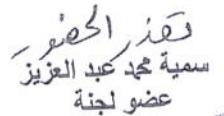 تعذر الحضور
سمية محمد عبد العزيز
عضو لجنة